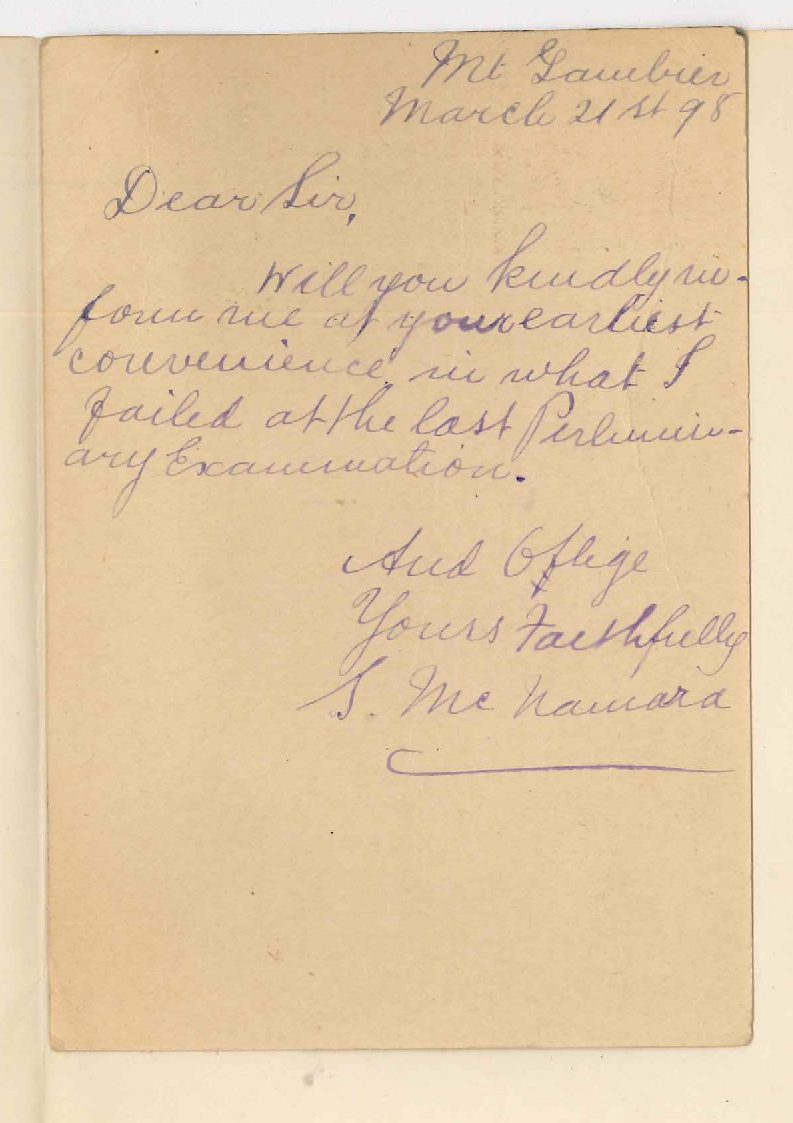 Mt Gambier
March 21st 98
Dear Sir,
Will you kindly in-
form me at your earliest
convenience in what I
failed at the last Perlimin-
ary Examination.
And Oblige
Yours Faithfully
S. Mc Namara